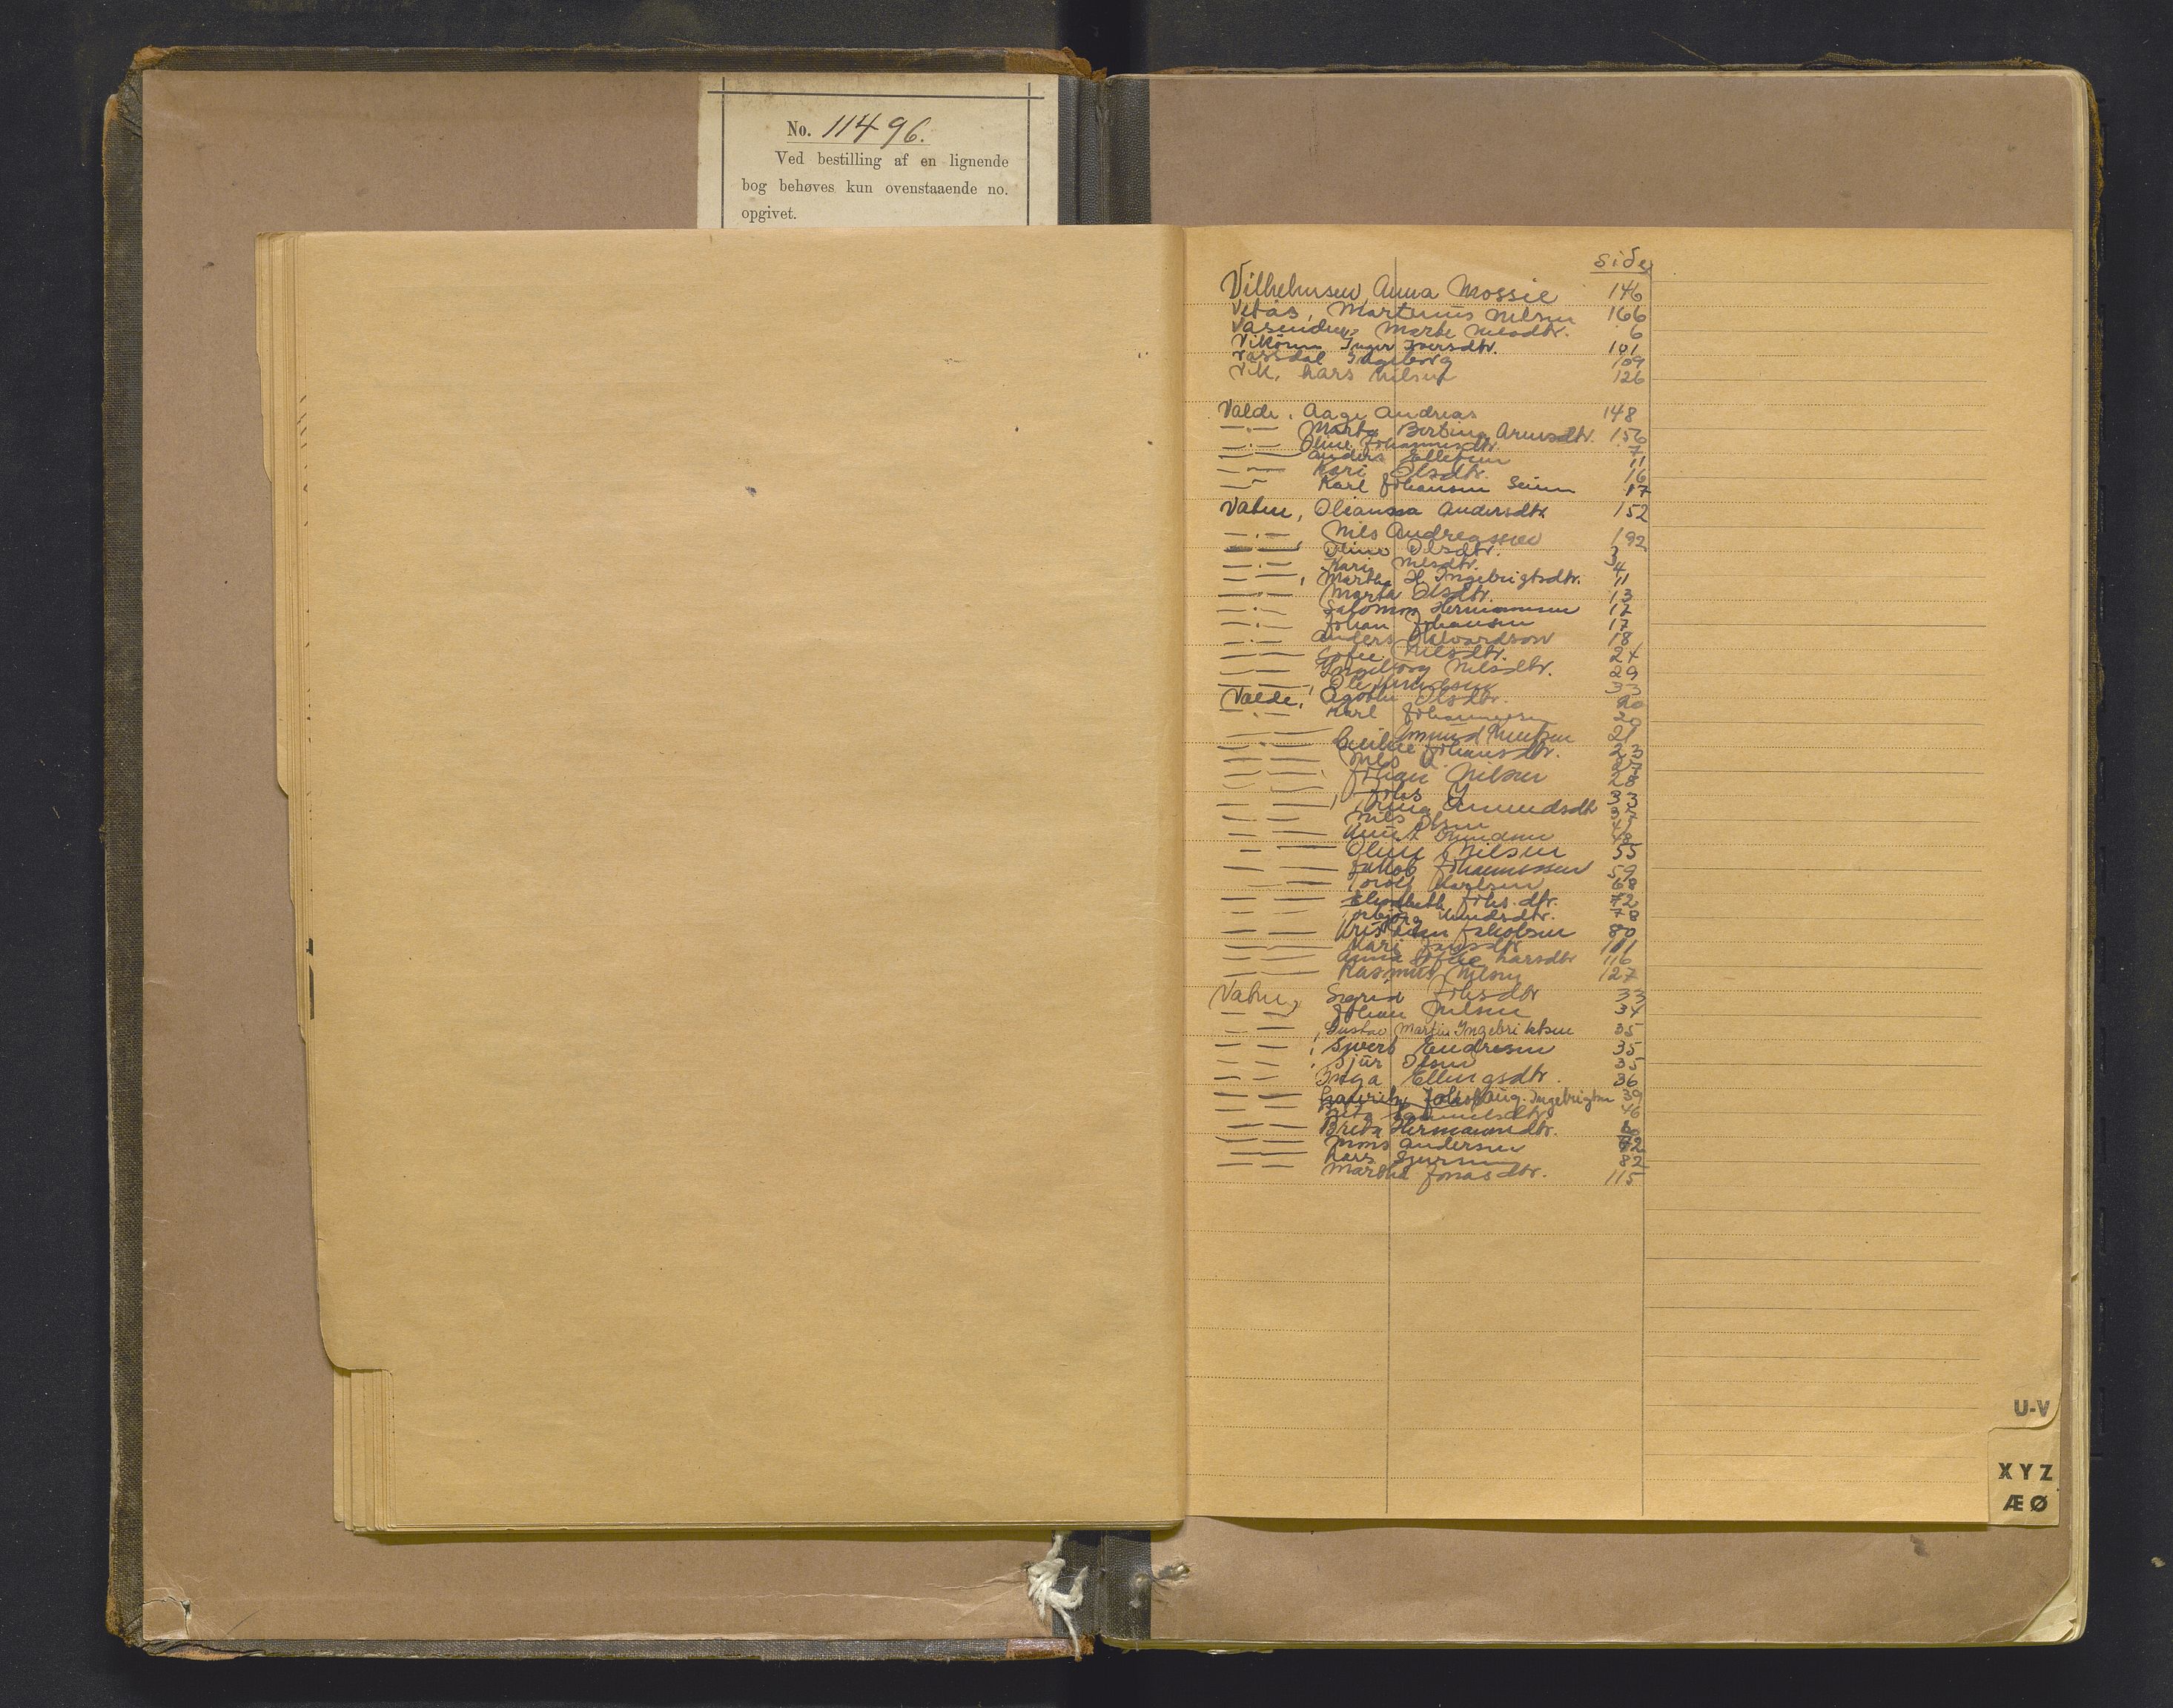 No. 11496.
Ved bestilling af en lignende
bog behøves kun ovenstaaende no.
opgivet.
Side
Vilhelmsen, Anna Mossie 146
Vetås, Martinus Nilsen 166
Vasenden, Marte Nilsdtr. 6
Vikøren Inger Iversdtr. 101
Ingeborg 109
Vik, Lars Nilsen 126
Valde, Aage Andreas 148
— . — Marta Bertina Arnesdtr. 156
— . — Oline Johannesdtr. 7
— — Anders Ellefsen 11
— — Kari Olsdtr. 16
— — Karl Johansen Seim 17
Vatne, Olianna Andersdtr. 152
— . — Nils Andreassen 192
— . — Olsdtr. 3
— . — Kari Nilsdtr. 4
— — , Martha H Ingebrigtsdtr. 11
— . — Marta Olsdtr. 13
— . — Salomon Hermannsen 17
— . — Johan Johansen 17
— . — Anders Halvardson 18
— . — Sofie Nilsdtr. 24
— — Ingeborg Nilsdtr. 29
— — , Ole Knudsen 33
Valde, Agathe Olsdtr. 20
— . — Karl Johannesen 20
— . — Knutsen 21
— — Johansdtr. 23
— — Nils 27
— — Johan Nilsen 28
— — , Johs 33
— — Amundsdtr 37
— — Nils Olsen
— — Amundsen 48
— — Nilsen 55
— — Jakob Johannessen 59
— — Karlsen 68
— — Elisabeth Johs.dtr. 72
— — Knudsdtr. 78
— — Kristian Jakobsen 80
— — Kari 111
— — Anna Sofie Larsdtr 116
— — Rasmus Nilsen 127
Vatne, Sigrid Johsdtr 33
— — Johan Nilsen 34
— — , Gustav Martin Ingebriktsen 35
— — , Sjvert Endresen 35
— — , Sjur Olsen 35
— — Inga Ellingsdtr. 36
— — Ingebrigtsen 39
— — Samuelsdtr 46
— — Brita Hermannsdtr.
— — Mons Andersen 72
— — Lars Sjursen 82
— — Martha Jonasdtr. 115
U-V
X Y Z
Æ Ø